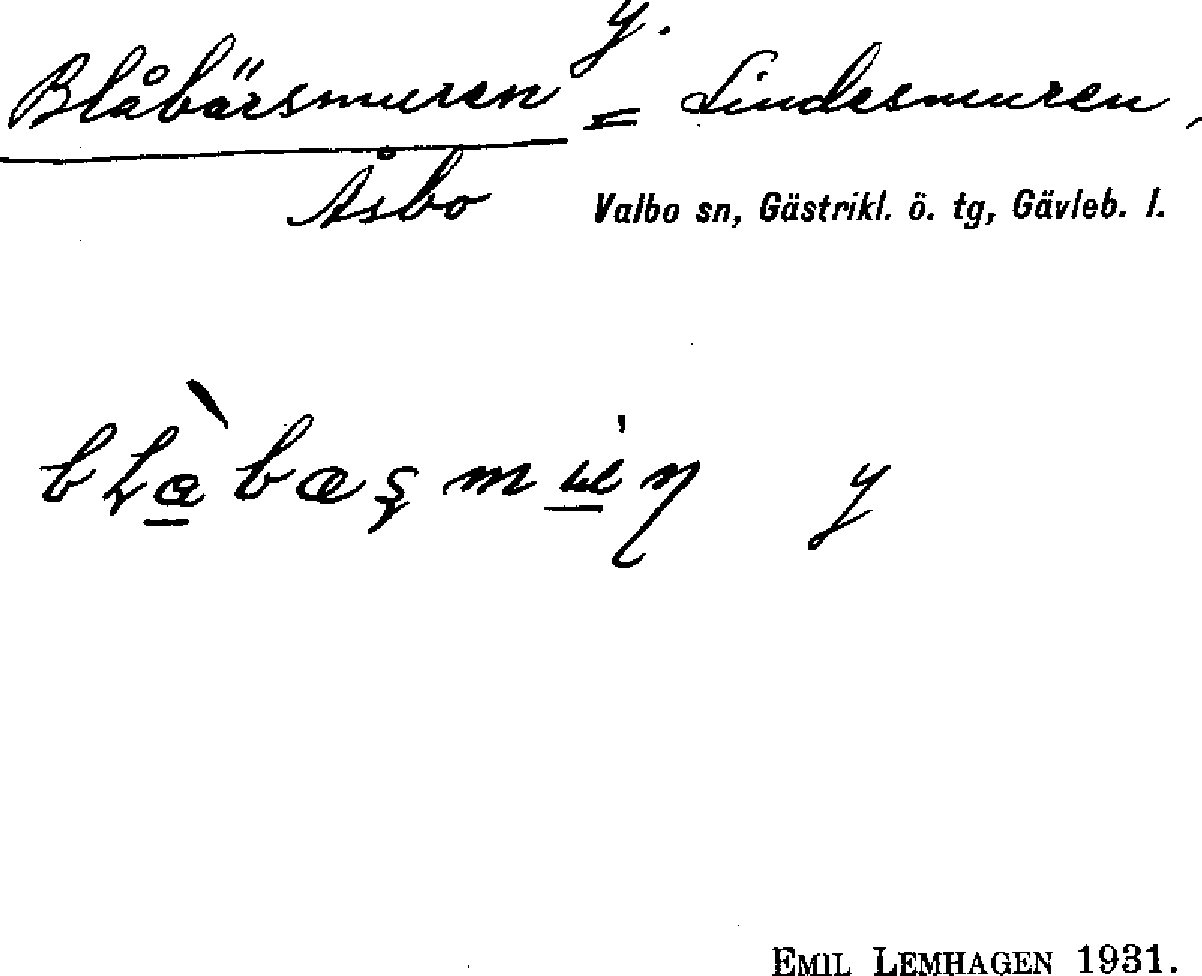 Blåbärsmuren y. = Lindesmuren,
Åsbo Valbo sn, Gästrikl. ö. tg, Gävleb. l.
y
EMIL LEMHAGEN 1931.